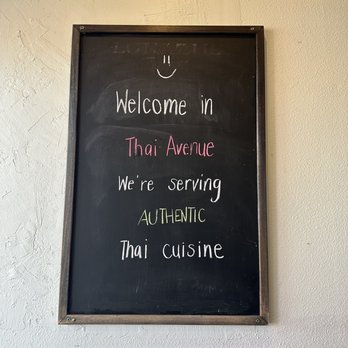 Welcome in
Thai Avenue
We're serving
AUTHENTIC
Thai cuisine